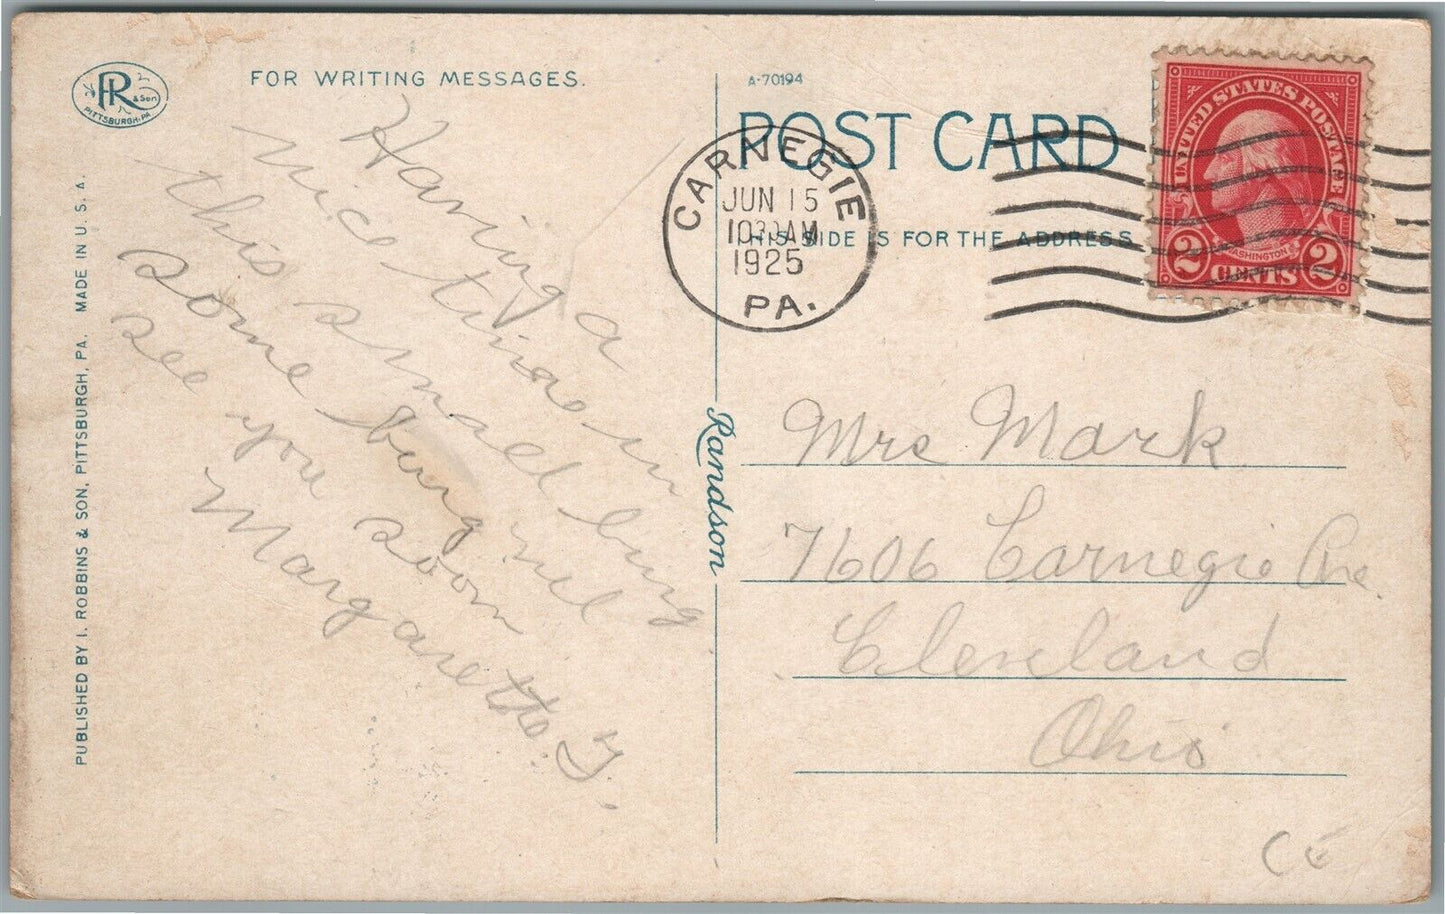 R & Son
PITTSBURGH, PA.
FOR WRITING MESSAGES.
PUBLISHED BY I. ROBBINS & SON, PITTSBURGH, PA. MADE IN U. S. A.
Having a
nice time in
this small burg
some burg
see you soon
Margaretto. Y.
Randson
A-70194
POST CARD
THIS SIDE IS FOR THE ADDRESS
CARNEGIE
JUN 15
1030AM
1925
PA.
UNITED STATES POSTAGE
WASHINGTON
2 CENTS 2
Mrs Mark
7606 Carnegie Ave.
Cleveland
Ohio